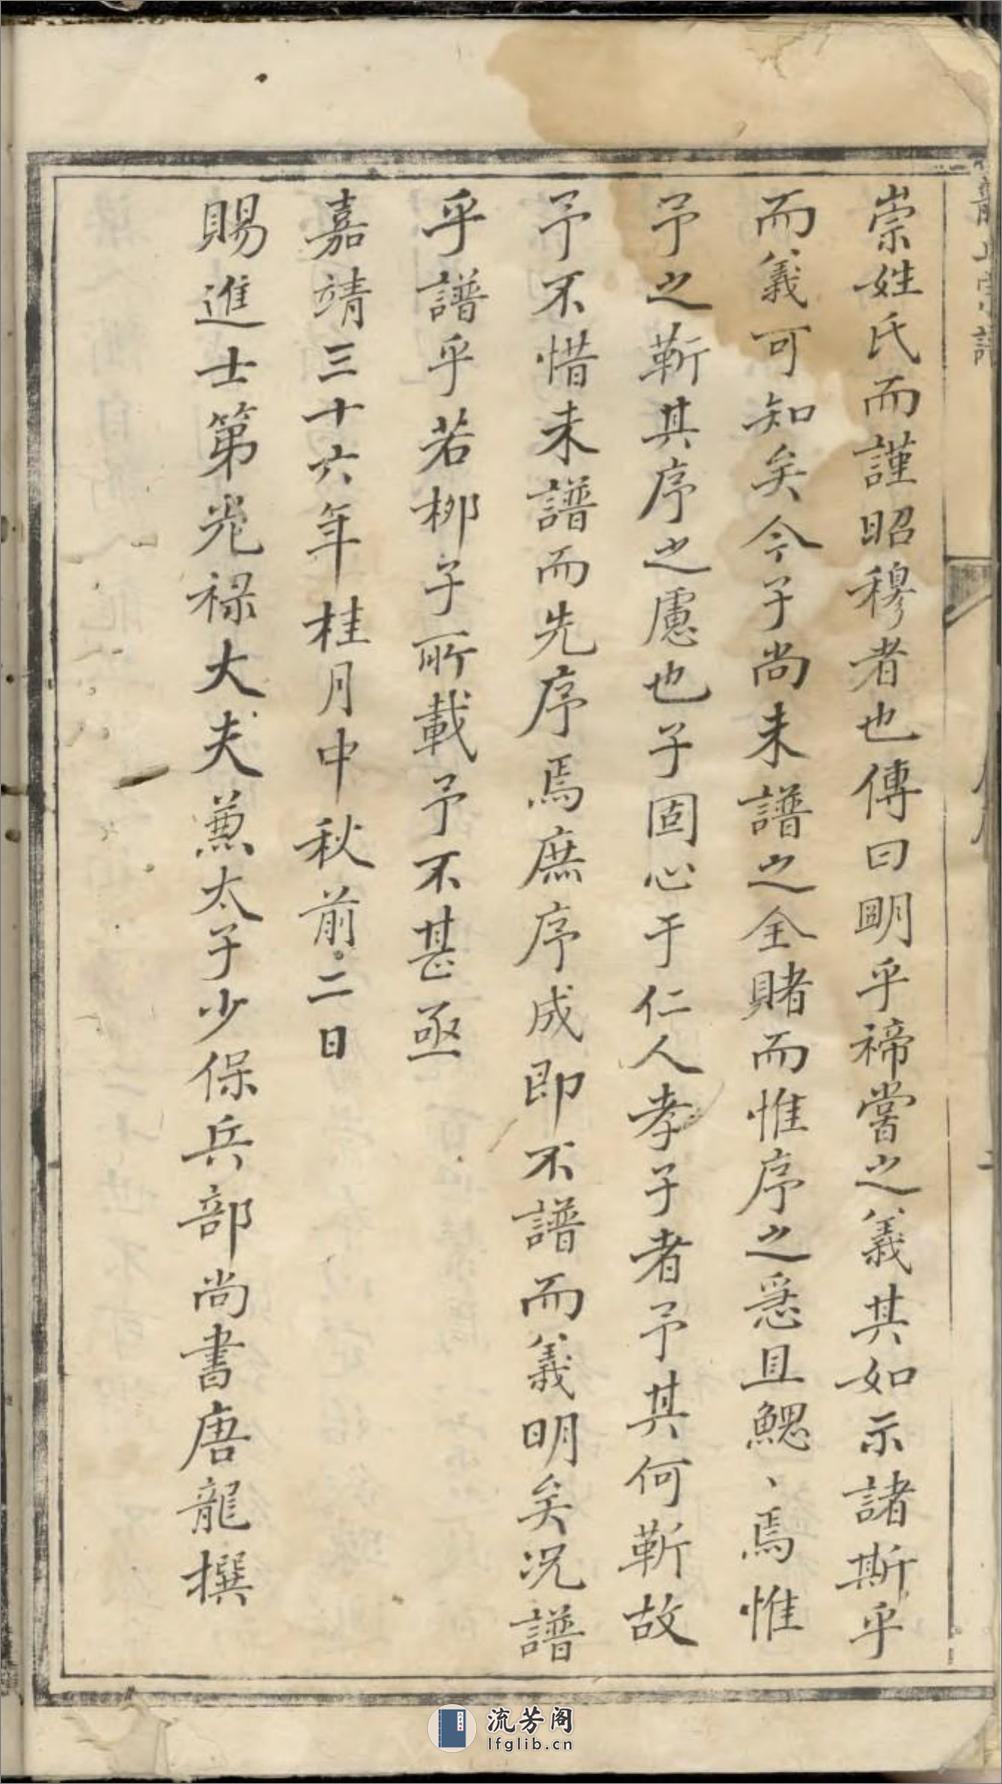 崇姓氏而謹昭穆者也傳曰明乎禘嘗之義其如示諸斯乎
而義可知矣今子尚未譜之全賭而惟序之惥且鰓、焉惟
予之靳其序之慮也子固心于仁人孝子者予其何靳故
予不惜未譜而先序焉庶序成即不譜而義明矣况譜
乎譜乎若柳子所載予不甚亟
嘉靖三十六年桂月中秋前二日
賜進士第光禄大夫兼太子少保兵部尚書唐龍撰
流芳阁
lfglib.cn